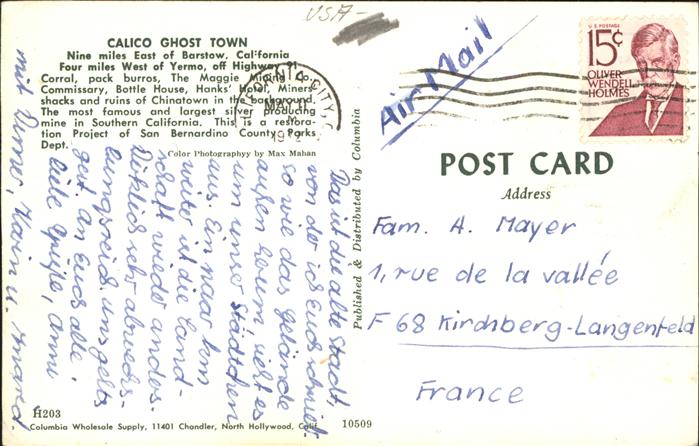 USA-
CALICO GHOST TOWN
Nine miles East of Barstow, California
Four miles West of Yermo, off Highway 91
Corral, pack burros, The Maggie Mining Co.
Commissary, Bottle House, Hanks' Hotel, Miners'
shacks and ruins of Chinatown in the background.
The most famous and largest silver producing
mine in Southern California. This is a restora-
tion Project of San Bernardino County Parks
Dept.
Color Photographyy by Max Mahan
Das ist die alte Stadt,
von der ich Euch schrieb
so wie das Gelände
außen herum sieht es
um unser Städtchen
aus. Ein paar km
weiter ist die Land-
schaft wieder anders.
Wirklich sehr abwechs-
lungsreich. Uns geht's
gut an Euch alle
liebe Grüße, Anni
mit Werner, Karin u.
H203
Columbia Wholesale Supply, 11401 Chandler, North Hollywood, Calif.
10509
Published & Distributed by Columbia
Air Mail
U.S. POSTAGE
15¢
OLIVER
WENDELL
HOLMES
POST CARD
Address
Fam. A. Mayer
1, rue de la vallée
F 68 Kirchberg-Langenfeld
France